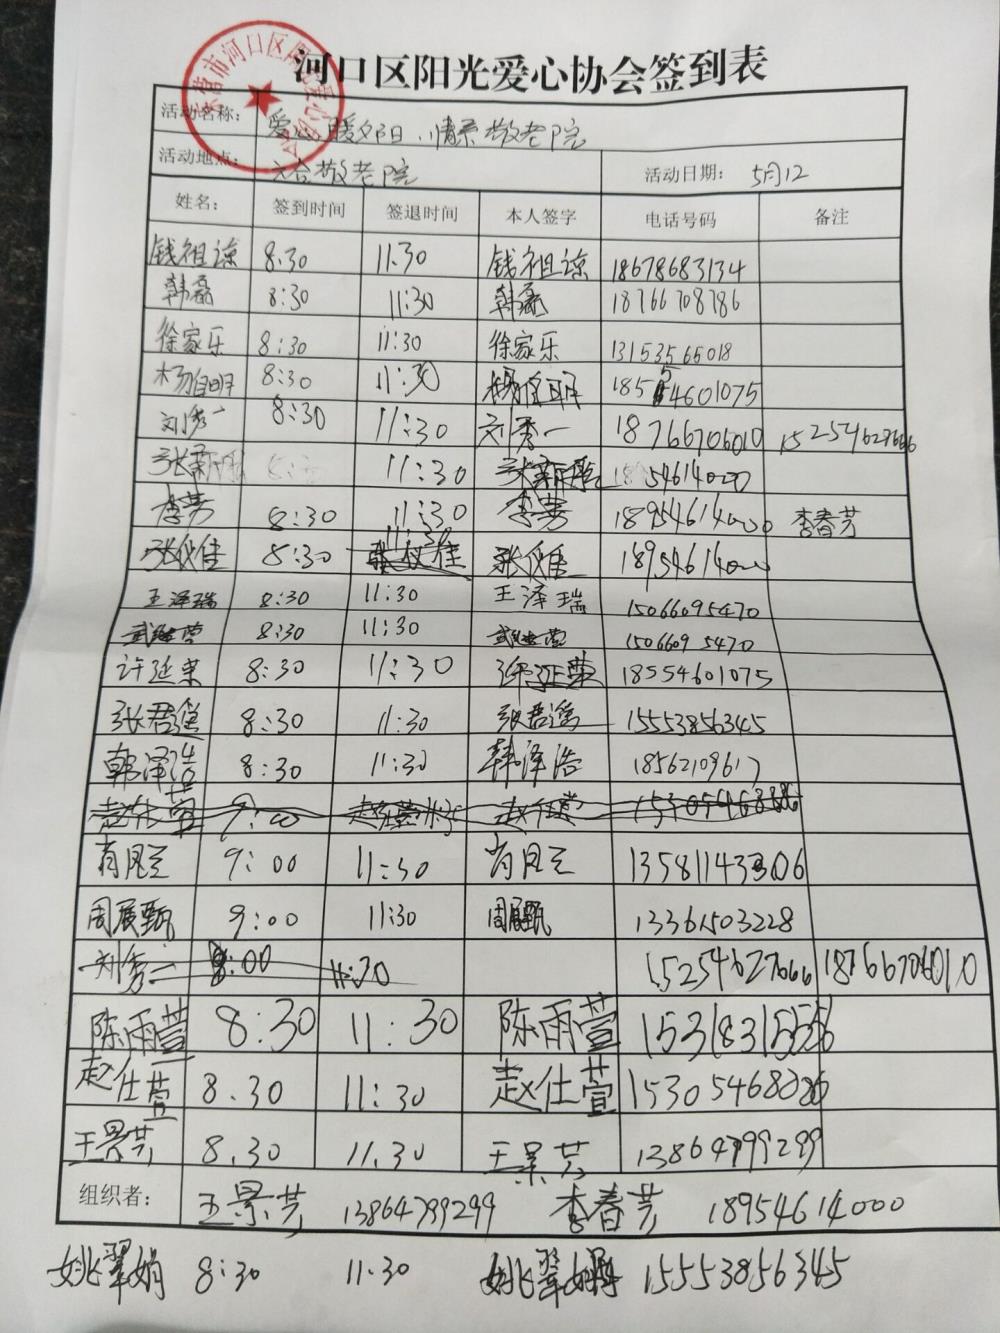 河口区阳光爱心协会签到表
活动名称: 爱心暖夕阳.情系敬老院
活动地点: 六合敬老院 活动日期: 5月12
姓名: 签到时间 签退时间 本人签字 电话号码 备注
钱祖谅 8.30 11.30 钱祖谅 18678683134
韩磊 8:30 11:30 韩磊 18766708786
徐家乐 8:30 11:30 徐家乐 13153565018
杨自明 8:30 11:30 18554601075
刘秀一 8:30 11:30 刘秀一 18766706010 15254627666
11:30 18954614000
李芳 8:30 11:30 李芳 18954614000 李春芳
张仪佳 8:30 11:30 张仪佳 18954614000
王泽瑞 8:30 11:30 王泽瑞 15066095470
8:30 11:30 15066095470
许延荣 8:30 11:30 许延荣 18554601075
8:30 11:30 15553856345
韩泽浩 8:30 11:30 韩泽浩 18562109617
9:00
肖凤兰 9:00 11:30 肖凤兰
周展甄 9:00 11:30 周展甄 13361503228
刘秀一 11:30 15254627666 18766706010
陈雨萱 8:30 11:30 陈雨萱
赵仕萱 8.30 11:30 赵仕萱
王景芳 8.30 11.30 王景芳 13864799299
组织者: 王景芳 13864799299 李春芳 18954614000
姚翠娟 8:30 11.30 姚翠娟 15553856345